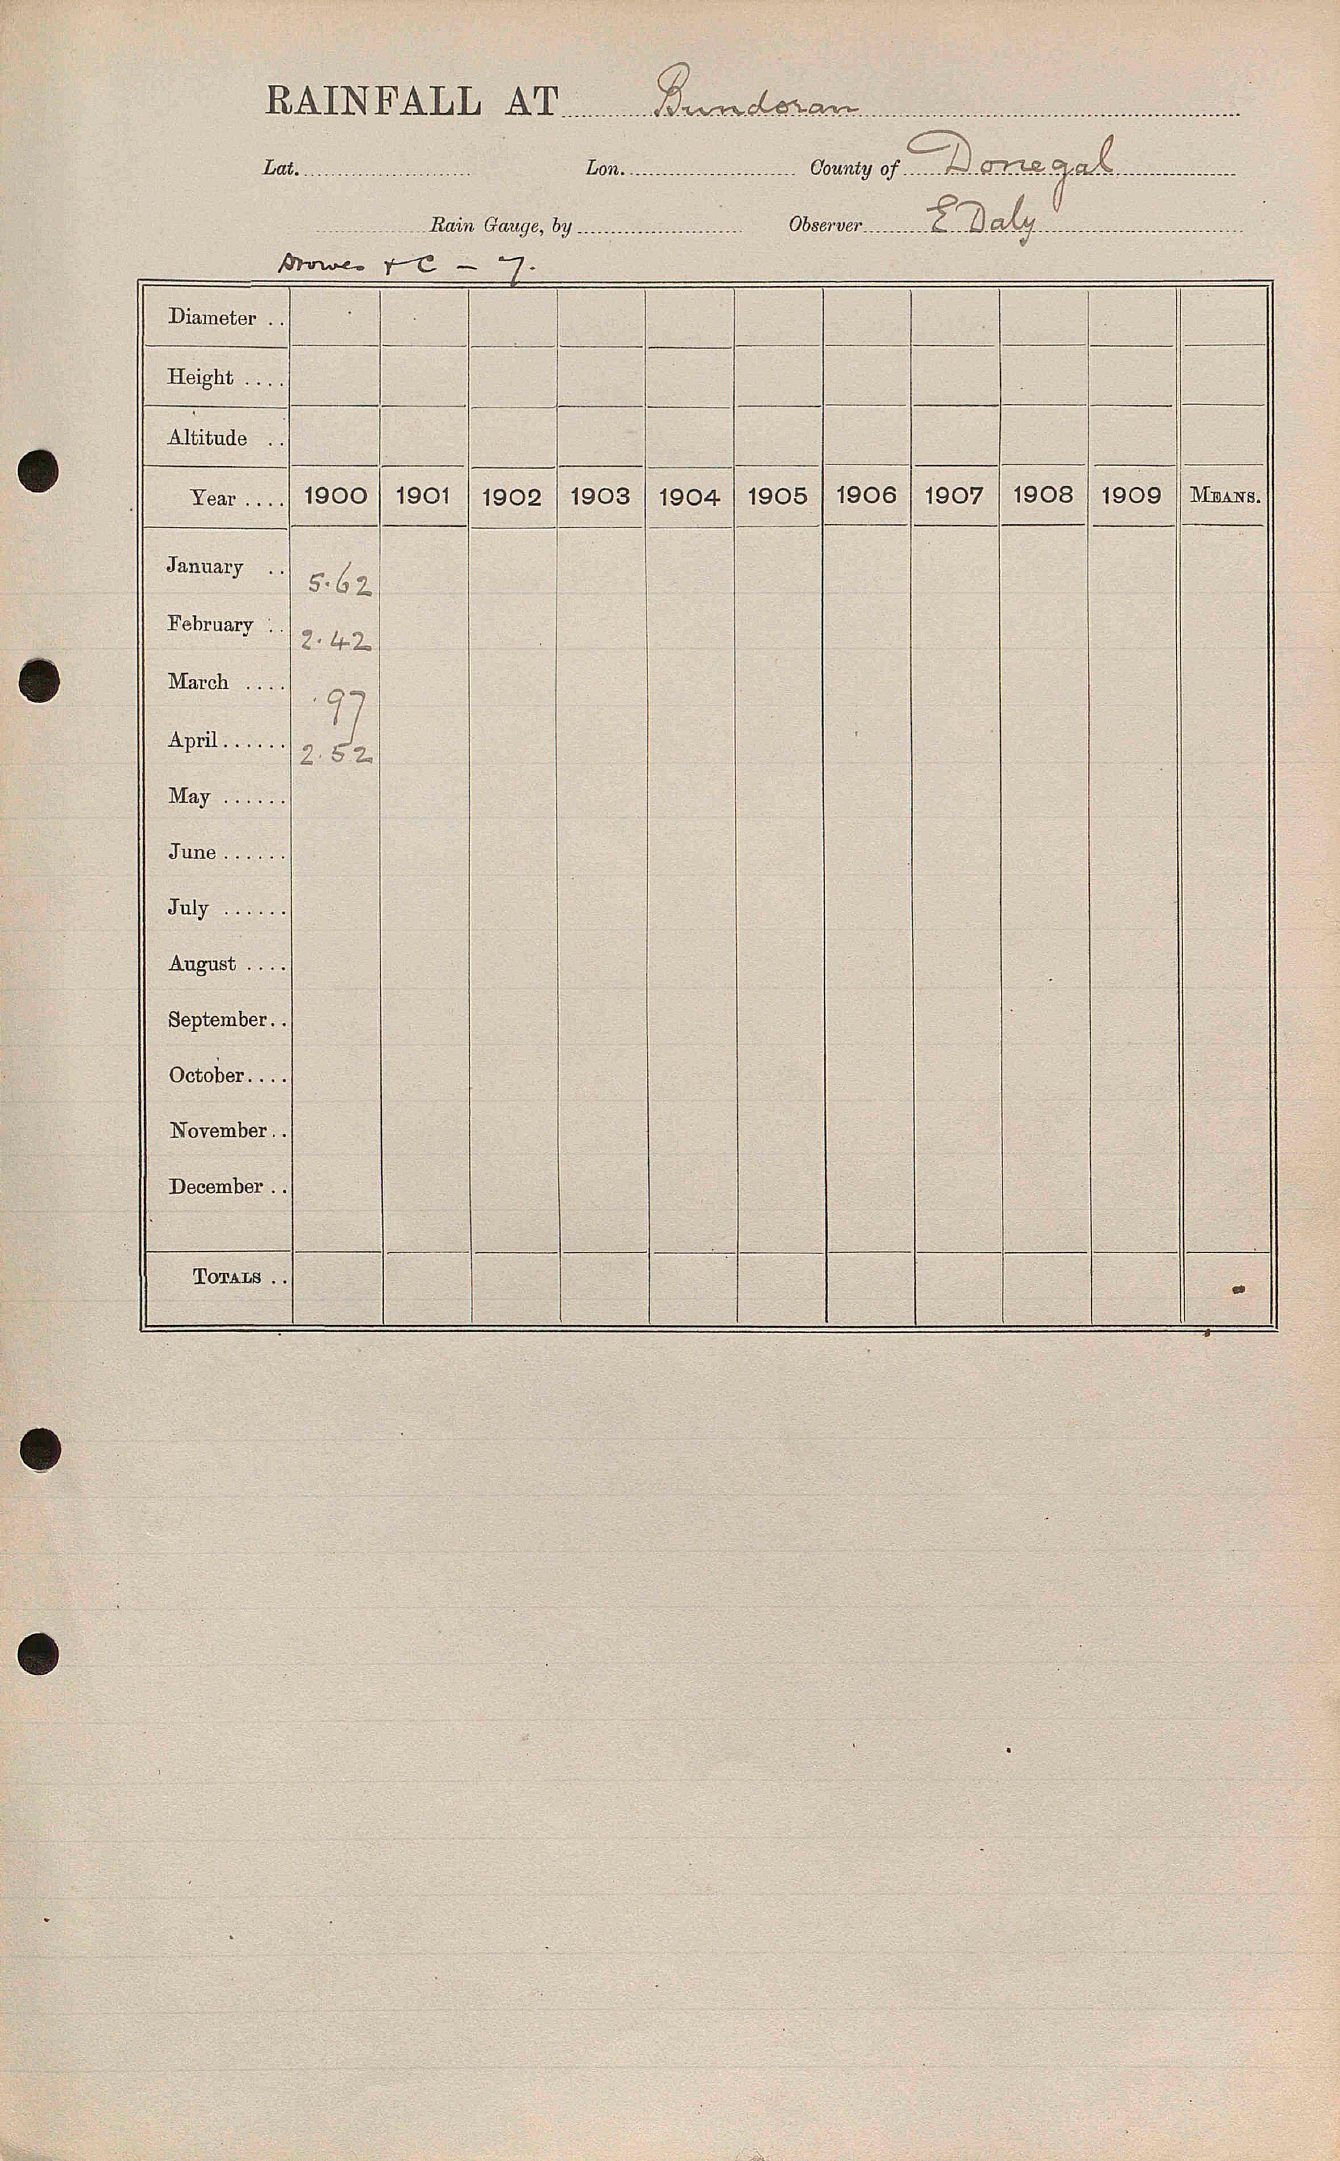 RAINFALL AT Bundoran
Lat. Lon. County of Donegal
Rain Gauge, by Observer E Daly
Drowes & C — 7.
Diameter ..
Height ....
Altitude ..
Year .... 1900 1901 1902 1903 1904 1905 1906 1907 1908 1909 MEANS.
January .. 5.62
February .. 2.42
March .... .97
April ...... 2.52
May ......
June ......
July ......
August ....
September ..
October ....
November ..
December ..
TOTALS ..